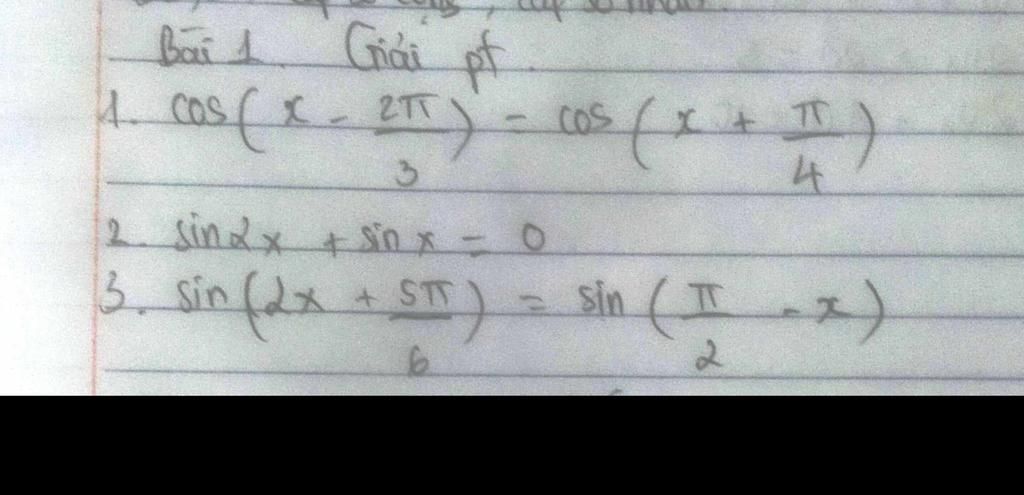 Bài 1. Giải pt.
1. cos(x - 2π/3) = cos(x + π/4)
2. sin2x + sinx = 0
3. sin(2x + 5π/6) = sin(π/2 - x)